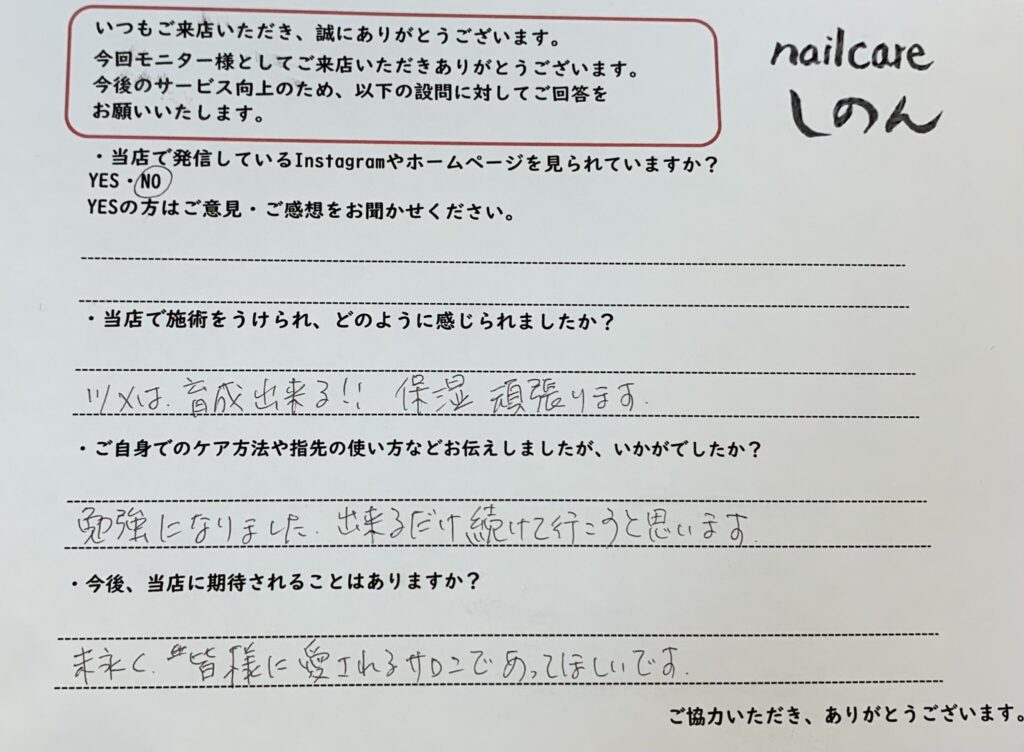 いつもご来店いただき、誠にありがとうございます。
今回モニター様としてご来店いただきありがとうございます。
今後のサービス向上のため、以下の設問に対してご回答を
お願いいたします。
nailcare
しのん
・当店で発信しているInstagramやホームページを見られていますか？
YES・NO
YESの方はご意見・ご感想をお聞かせください。
・当店で施術をうけられ、どのように感じられましたか？
ツメは、育成出来る!! 保湿 頑張ります.
・ご自身でのケア方法や指先の使い方などお伝えしましたが、いかがでしたか？
勉強になりました. 出来るだけ続けて行こうと思います.
・今後、当店に期待されることはありますか？
末永く、皆様に愛されるサロンであってほしいです.
ご協力いただき、ありがとうございます。